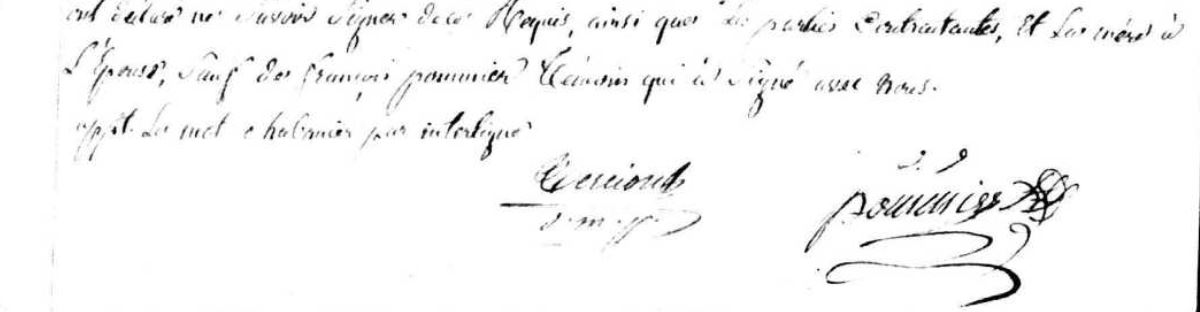 ont declaré ne savoir signer de ce Requis, ainsi que les parties Contractantes, et la mère à
L'épouse, sauf de françois pommier témoin qui à Signé avec nous.
appt. Le mot chabanier par interligne
pommier